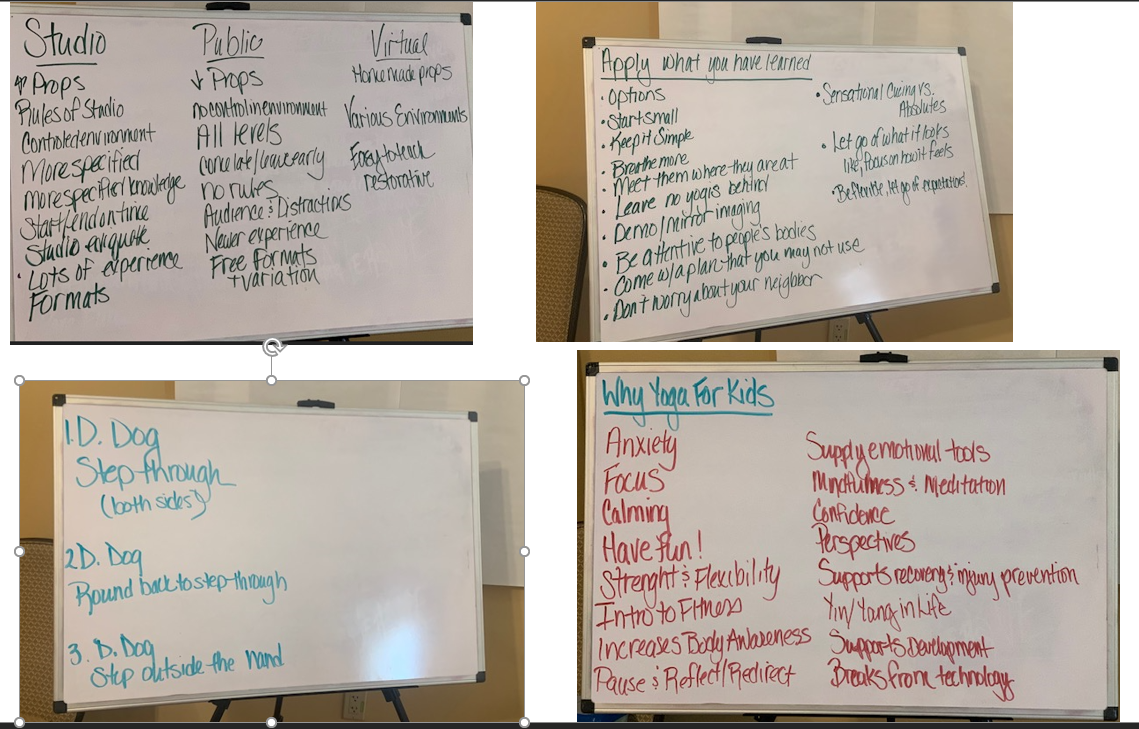 Studio
↑ Props
Rules of Studio
Controled environment
More specified
more specified knowledge
Start/end on time
Studio
· Lots of experience
Formats
Public
↓ Props
no control in environment
All levels
come late/leave early
no rules
Audience & Distractions
Newer experience
Free Formats
+ variation
Virtual
Homemade props
Various Environments
Easy to teach
restorative
Apply what you have learned
· Options
· Start small
· Keep it Simple
· Breathe more
· Meet them where they are at
· Leave no yogis behind
· Demo/mirror imaging
· Be attentive to people's bodies
· Come w/a plan that you may not use
· Don't worry about your neighbor
· Sensational Cueing vs.
Absolutes
· Let go of what it looks
like, focus on how it feels
· Be flexible, let go of expectations!
1. D. Dog
Step through
(both sides)
2 D. Dog
Round back to step through
3. D. Dog
Step outside the hand
Why Yoga For Kids
Anxiety
Focus
Calming
Have fun!
Strenght & Flexibility
Intro to Fitness
Increases Body Awareness
Pause & Reflect/Redirect
Supply emotional tools
Mindfulness & Meditation
Confidence
Perspectives
Supports recovery & injury prevention
Yin/Yang in Life
Supports Development
Breaks from technology